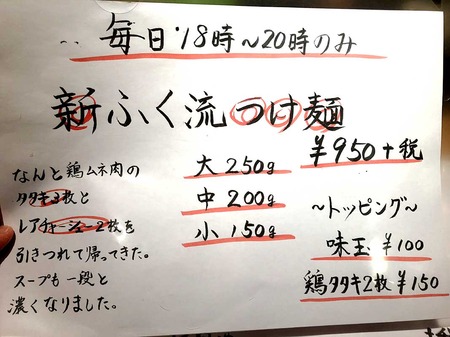 毎日18時〜20時のみ
新ふく流つけ麺
¥950+税
なんと鶏ムネ肉の
タタキ3枚と
レアチャーシュー2枚を
引きつれて帰ってきた。
スープも一段と
濃くなりました。
大250g
中200g
小150g
〜トッピング〜
味玉¥100
鶏タタキ2枚¥150